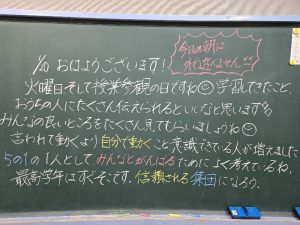 1/20 おはようございます!
今日の朝は
火曜日そして授業参観の日ですね 学習してきたこと、
おうちの人にたくさん伝えられるといいなと思います
みんなの良いところをたくさん見てもらいましょうね
言われて動くより自分で動くこと意識できる人が増えました
5の1の1人としてみんなとがんばるためによく考えているね。
最高学年はすぐそこです。信頼される集団になろう。